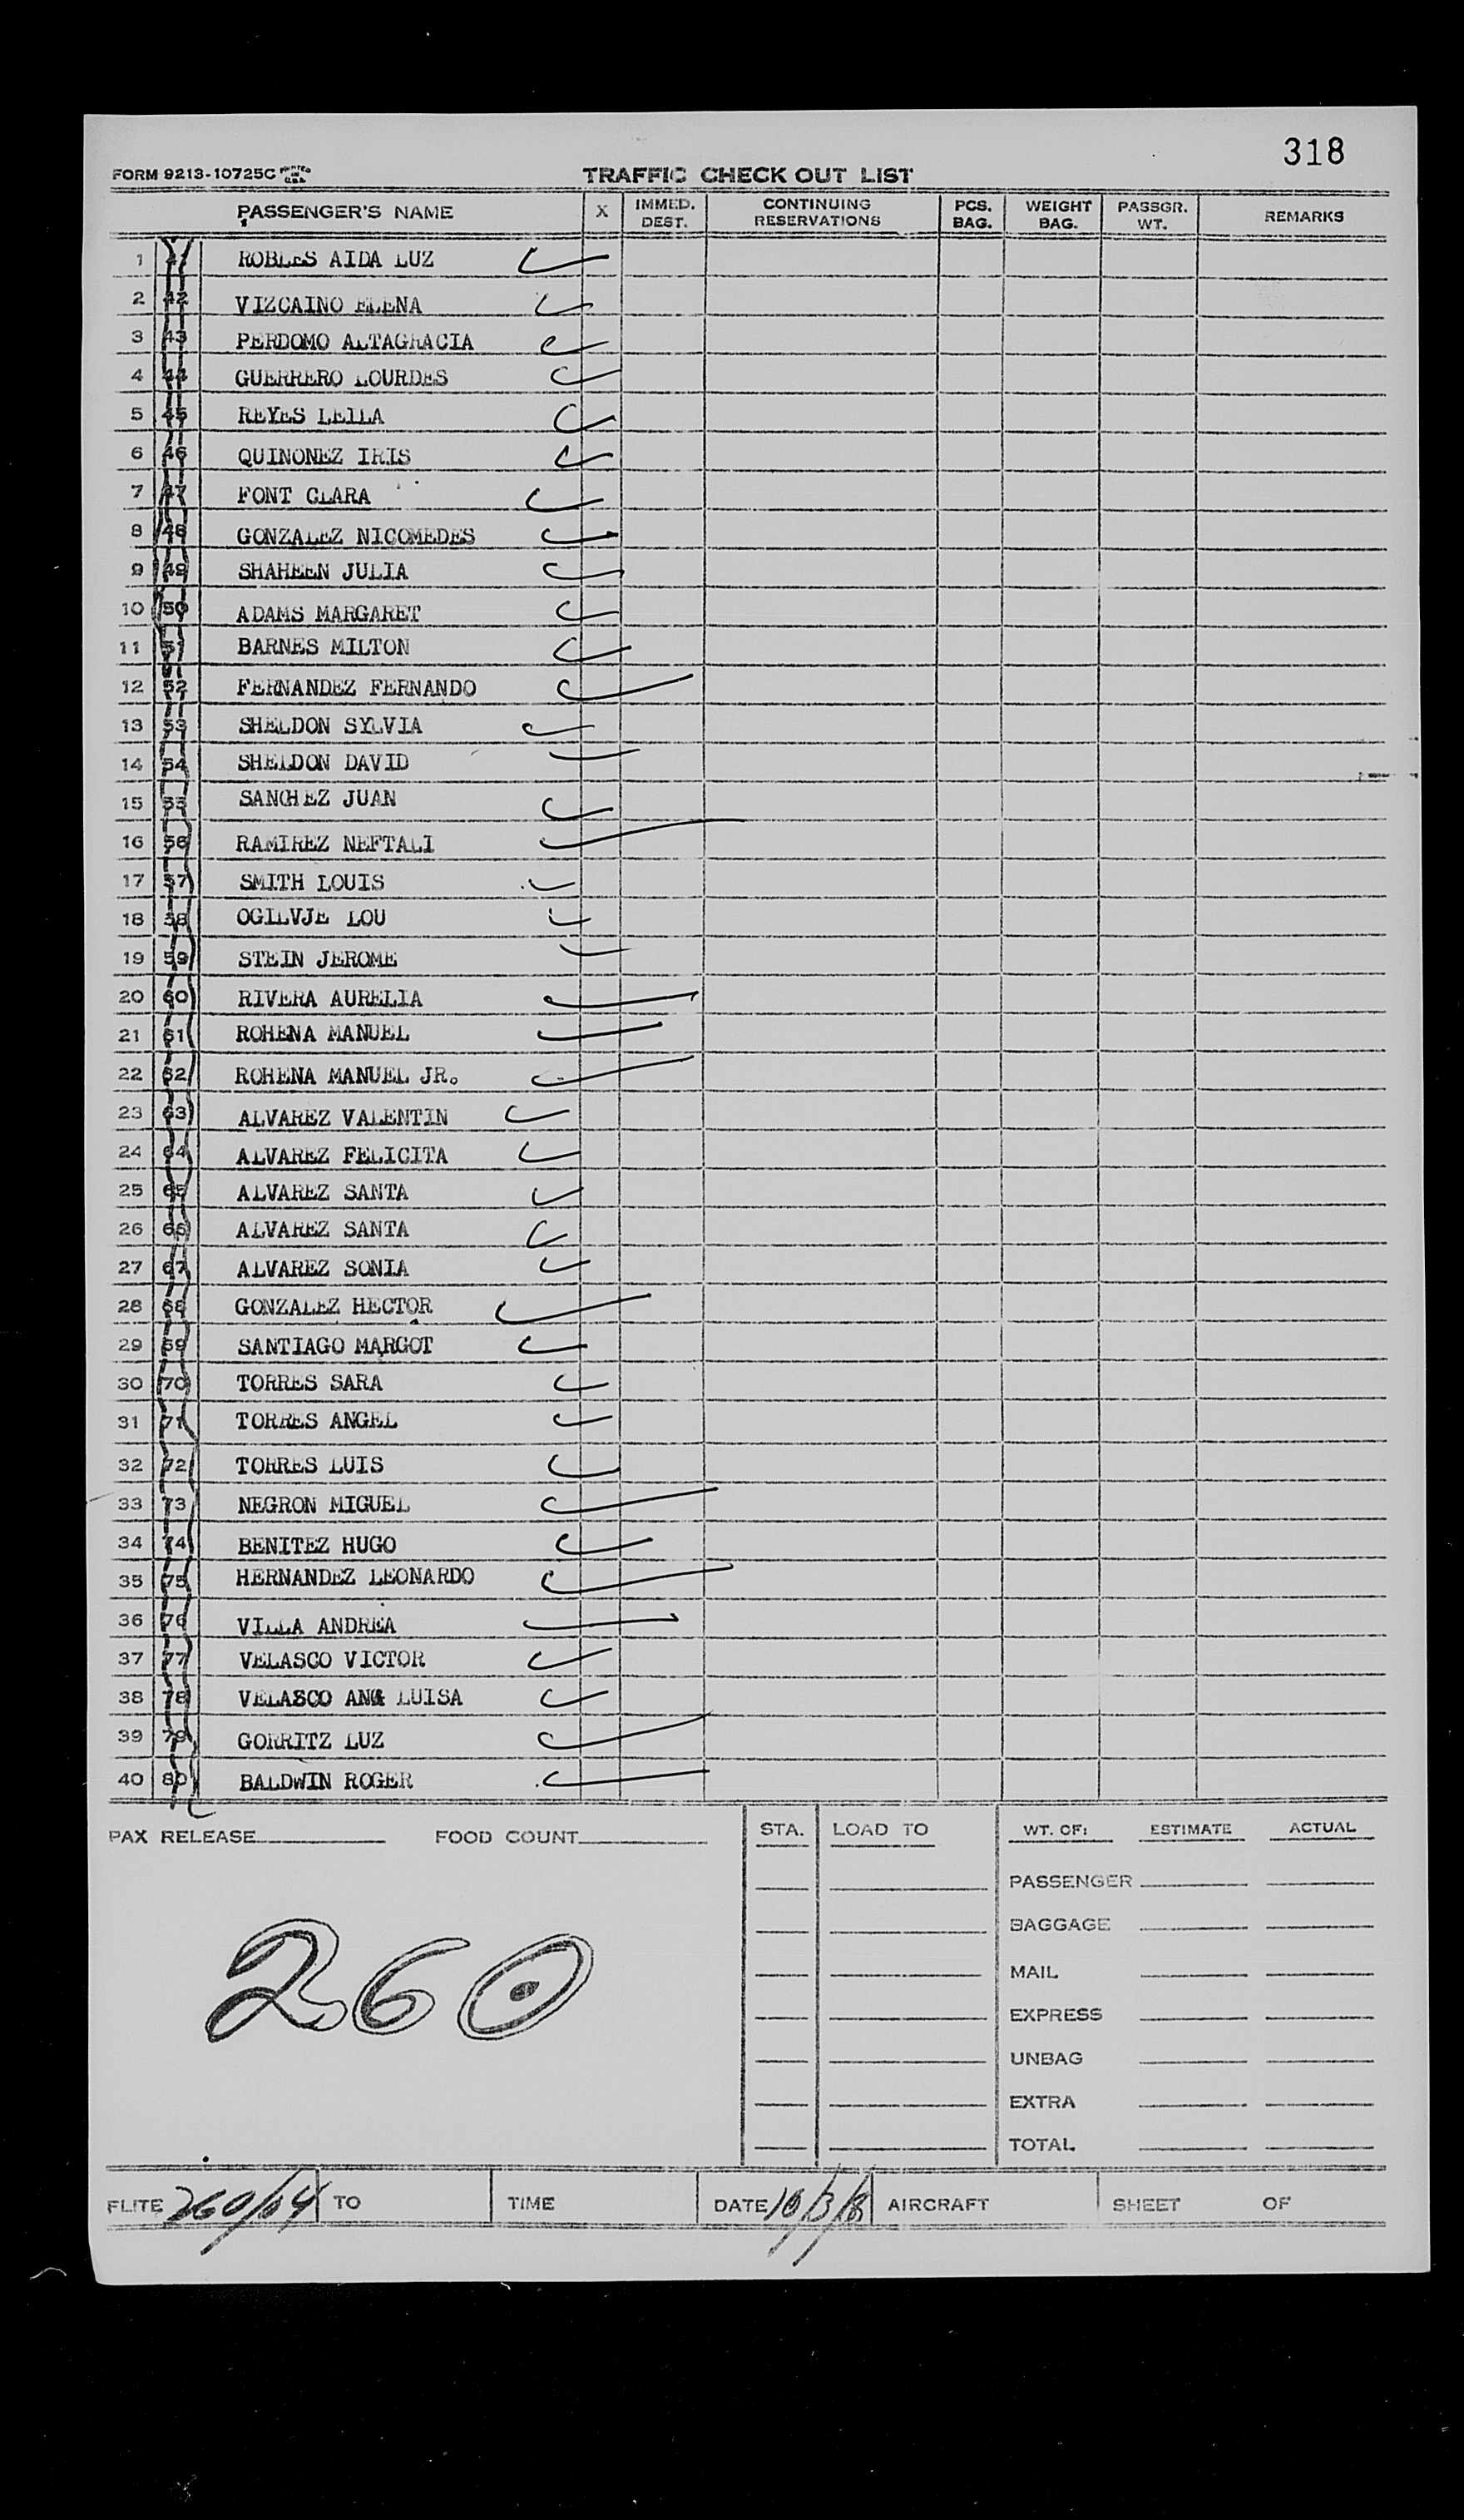 318
FORM 9213-10725C PRINTED IN U.S.A. TRAFFIC CHECK OUT LIST
PASSENGER'S NAME X IMMED. DEST. CONTINUING RESERVATIONS PCS. BAG. WEIGHT BAG. PASSGR. WT. REMARKS
1 41 ROBLES AIDA LUZ
2 42 VIZCAINO ELENA
3 43 PERDOMO ALTAGRACIA
4 44 GUERRERO LOURDES
5 45 REYES LEILA
6 46 QUINONEZ IRIS
7 47 FONT CLARA
8 48 GONZALEZ NICOMEDES
9 49 SHAHEEN JULIA
10 50 ADAMS MARGARET
11 51 BARNES MILTON
12 52 FERNANDEZ FERNANDO
13 53 SHELDON SYLVIA
14 54 SHELDON DAVID
15 55 SANCHEZ JUAN
16 56 RAMIREZ NEFTALI
17 57 SMITH LOUIS
18 58 OGILVJE LOU
19 59 STEIN JEROME
20 60 RIVERA AURELIA
21 61 ROHENA MANUEL
22 62 ROHENA MANUEL JR.
23 63 ALVAREZ VALENTIN
24 64 ALVAREZ FELICITA
25 65 ALVAREZ SANTA
26 66 ALVAREZ SANTA
27 67 ALVAREZ SONIA
28 68 GONZALEZ HECTOR
29 69 SANTIAGO MARGOT
30 70 TORRES SARA
31 71 TORRES ANGEL
32 72 TORRES LUIS
33 73 NEGRON MIGUEL
34 74 BENITEZ HUGO
35 75 HERNANDEZ LEONARDO
36 76 VILLA ANDREA
37 77 VELASCO VICTOR
38 78 VELASCO ANA LUISA
39 79 GORRITZ LUZ
40 80 BALDWIN ROGER
PAX RELEASE FOOD COUNT STA. LOAD TO WT. OF: ESTIMATE ACTUAL
PASSENGER
BAGGAGE
260
MAIL
EXPRESS
UNBAG
EXTRA
TOTAL
FLITE 260/04 TO TIME DATE 10/3/ AIRCRAFT SHEET OF